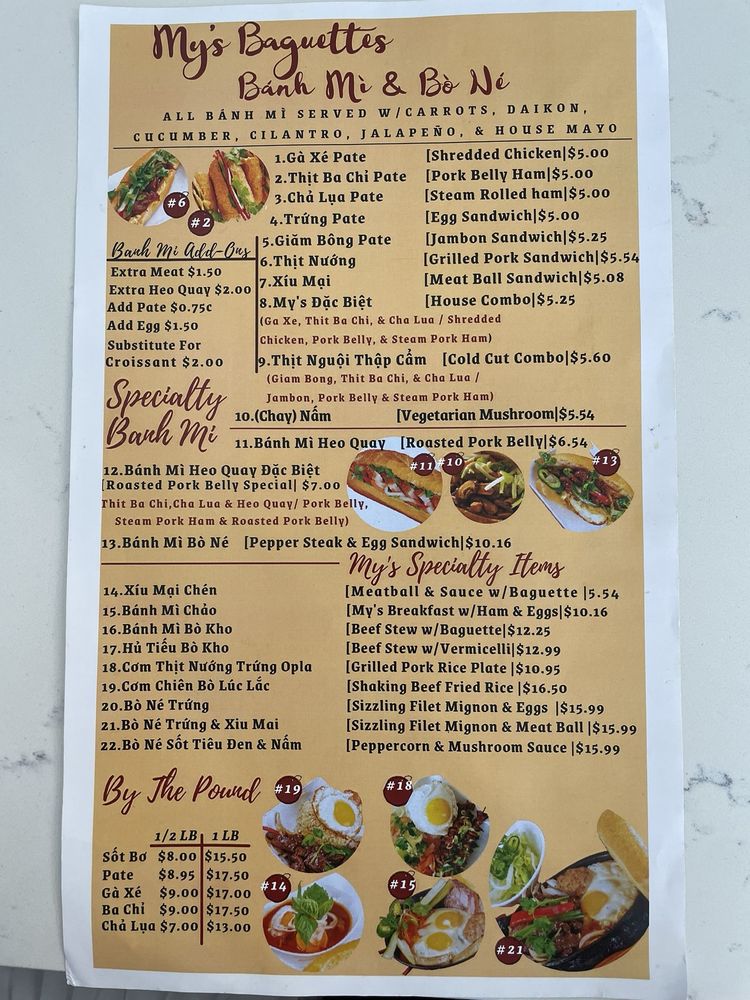 My's Baguettes
Bánh Mì & Bò Né
ALL BÁNH MÌ SERVED W/CARROTS, DAIKON,
CUCUMBER, CILANTRO, JALAPEÑO, & HOUSE MAYO
#6
#2
1.Gà Xé Pate [Shredded Chicken|$5.00
2.Thịt Ba Chỉ Pate [Pork Belly Ham|$5.00
3.Chả Lụa Pate [Steam Rolled ham|$5.00
4.Trứng Pate [Egg Sandwich|$5.00
5.Giăm Bông Pate [Jambon Sandwich|$5.25
6.Thịt Nướng [Grilled Pork Sandwich|$5.54
7.Xíu Mại [Meat Ball Sandwich|$5.08
8.My's Đặc Biệt [House Combo|$5.25
(Ga Xe, Thit Ba Chi, & Cha Lua / Shredded
Chicken, Pork Belly, & Steam Pork Ham)
9.Thịt Nguội Thập Cẩm [Cold Cut Combo|$5.60
(Giam Bong, Thit Ba Chi, & Cha Lua /
Jambon, Pork Belly & Steam Pork Ham)
10.(Chay) Nấm [Vegetarian Mushroom|$5.54
Banh Mi Add-Ons
Extra Meat $1.50
Extra Heo Quay $2.00
Add Pate $0.75c
Add Egg $1.50
Substitute For
Croissant $2.00
Specialty
Banh Mi
11.Bánh Mì Heo Quay [Roasted Pork Belly|$6.54
12.Bánh Mì Heo Quay Đặc Biệt
[Roasted Pork Belly Special| $7.00
Thit Ba Chi,Cha Lua & Heo Quay/ Pork Belly,
Steam Pork Ham & Roasted Pork Belly)
#11
#10
#13
13.Bánh Mì Bò Né [Pepper Steak & Egg Sandwich|$10.16
My's Specialty Items
14.Xíu Mại Chén [Meatball & Sauce w/Baguette |5.54
15.Bánh Mì Chảo [My's Breakfast w/Ham & Eggs|$10.16
16.Bánh Mì Bò Kho [Beef Stew w/Baguette|$12.25
17.Hủ Tiếu Bò Kho [Beef Stew w/Vermicelli|$12.99
18.Cơm Thịt Nướng Trứng Opla [Grilled Pork Rice Plate |$10.95
19.Cơm Chiên Bò Lúc Lắc [Shaking Beef Fried Rice |$16.50
20.Bò Né Trứng [Sizzling Filet Mignon & Eggs |$15.99
21.Bò Né Trứng & Xiu Mai [Sizzling Filet Mignon & Meat Ball |$15.99
22.Bò Né Sốt Tiêu Đen & Nấm [Peppercorn & Mushroom Sauce |$15.99
By The Pound
1/2 LB 1 LB
Sốt Bơ $8.00 $15.50
Pate $8.95 $17.50
Gà Xé $9.00 $17.00
Ba Chỉ $9.00 $17.50
Chả Lụa $7.00 $13.00
#19
#18
#14
#15
#21